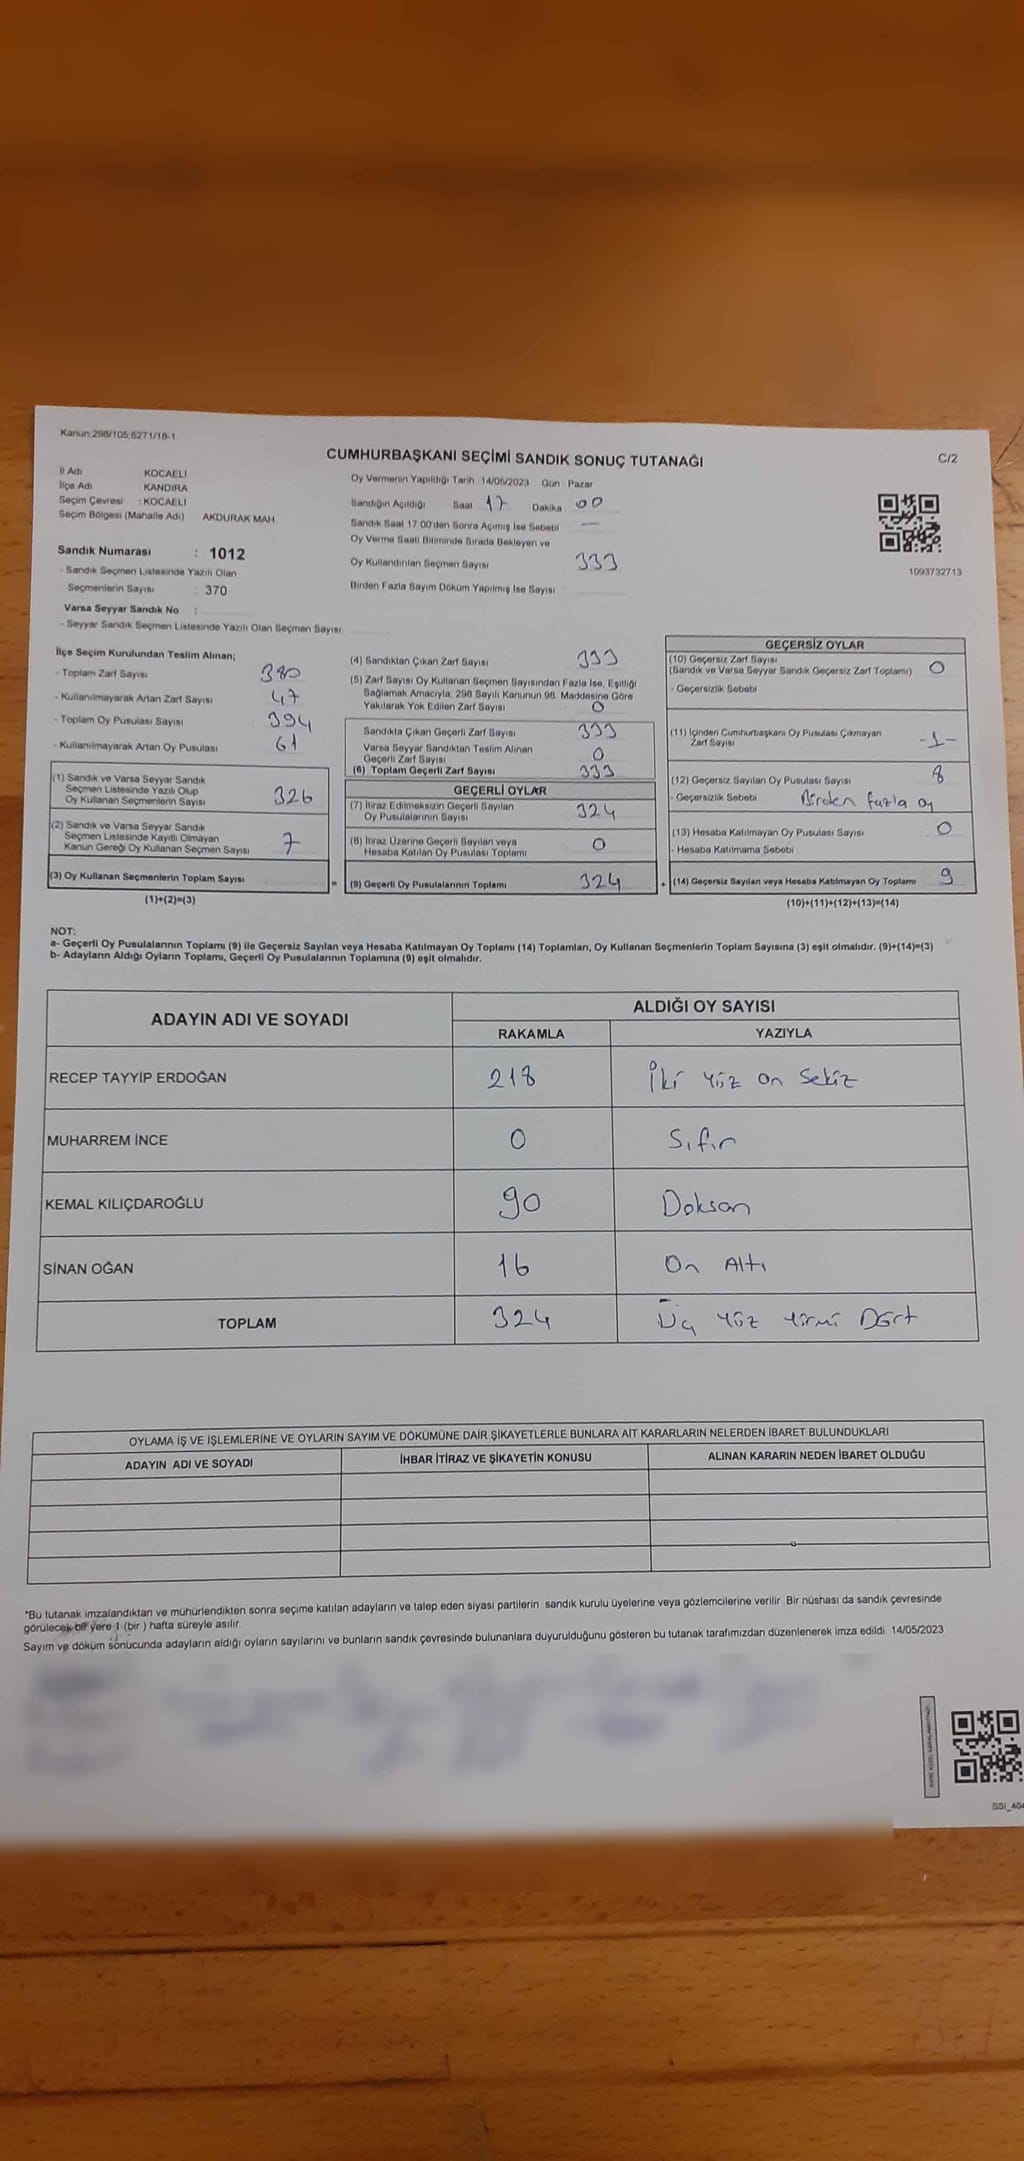 Kanun:298/105;6271/18-1
CUMHURBAŞKANI SEÇİMİ SANDIK SONUÇ TUTANAĞI
C/2
İl Adı KOCAELİ
İlçe Adı KANDIRA
Seçim Çevresi : KOCAELİ
Seçim Bölgesi (Mahalle Adı) AKDURAK MAH.
Oy Vermenin Yapıldığı Tarih 14/05/2023 Gün Pazar
Sandığın Açıldığı Saat 17 Dakika 00
Sandık Saat 17:00'den Sonra Açılmış İse Sebebi —
Oy Verme Saati Bitiminde Sırada Bekleyen ve
Oy Kullandırılan Seçmen Sayısı 333
Birden Fazla Sayım Döküm Yapılmış İse Sayısı
1093732713
Sandık Numarası : 1012
- Sandık Seçmen Listesinde Yazılı Olan
Seçmenlerin Sayısı : 370
Varsa Seyyar Sandık No :
- Seyyar Sandık Seçmen Listesinde Yazılı Olan Seçmen Sayısı
İlçe Seçim Kurulundan Teslim Alınan;
- Toplam Zarf Sayısı 380
- Kullanılmayarak Artan Zarf Sayısı 47
- Toplam Oy Pusulası Sayısı 394
- Kullanılmayarak Artan Oy Pusulası 61
(1) Sandık ve Varsa Seyyar Sandık
Seçmen Listesinde Yazılı Olup
Oy Kullanan Seçmenlerin Sayısı 326
(2) Sandık ve Varsa Seyyar Sandık
Seçmen Listesinde Kayıtlı Olmayan
Kanun Gereği Oy Kullanan Seçmen Sayısı 7
(3) Oy Kullanan Seçmenlerin Toplam Sayısı
(1)+(2)=(3)
(4) Sandıktan Çıkan Zarf Sayısı 333
(5) Zarf Sayısı Oy Kullanan Seçmen Sayısından Fazla İse, Eşitliği
Sağlamak Amacıyla, 298 Sayılı Kanunun 98. Maddesine Göre
Yakılarak Yok Edilen Zarf Sayısı 0
Sandıkta Çıkan Geçerli Zarf Sayısı 333
Varsa Seyyar Sandıktan Teslim Alınan
Geçerli Zarf Sayısı 0
(6) Toplam Geçerli Zarf Sayısı 333
GEÇERLİ OYLAR
(7) İtiraz Edilmeksizin Geçerli Sayılan
Oy Pusulalarının Sayısı 324
(8) İtiraz Üzerine Geçerli Sayılan veya
Hesaba Katılan Oy Pusulası Toplamı 0
= (9) Geçerli Oy Pusulalarının Toplamı 324
GEÇERSİZ OYLAR
(10) Geçersiz Zarf Sayısı
(Sandık ve Varsa Seyyar Sandık Geçersiz Zarf Toplamı) 0
- Geçersizlik Sebebi
(11) İçinden Cumhurbaşkanı Oy Pusulası Çıkmayan
Zarf Sayısı -1-
(12) Geçersiz Sayılan Oy Pusulası Sayısı 8
- Geçersizlik Sebebi Birden fazla oy
(13) Hesaba Katılmayan Oy Pusulası Sayısı 0
- Hesaba Katılmama Sebebi :
+ (14) Geçersiz Sayılan veya Hesaba Katılmayan Oy Toplamı 9
(10)+(11)+(12)+(13)=(14)
NOT:
a- Geçerli Oy Pusulalarının Toplamı (9) ile Geçersiz Sayılan veya Hesaba Katılmayan Oy Toplamı (14) Toplamları, Oy Kullanan Seçmenlerin Toplam Sayısına (3) eşit olmalıdır. (9)+(14)=(3)
b- Adayların Aldığı Oyların Toplamı, Geçerli Oy Pusulalarının Toplamına (9) eşit olmalıdır.
ADAYIN ADI VE SOYADI
ALDIĞI OY SAYISI
RAKAMLA YAZIYLA
RECEP TAYYİP ERDOĞAN 218 İki Yüz On Sekiz
MUHARREM İNCE 0 Sıfır
KEMAL KILIÇDAROĞLU 90 Doksan
SİNAN OĞAN 16 On Altı
TOPLAM 324 Üç Yüz Yirmi Dört
OYLAMA İŞ VE İŞLEMLERİNE VE OYLARIN SAYIM VE DÖKÜMÜNE DAİR ŞİKAYETLERLE BUNLARA AİT KARARLARIN NELERDEN İBARET BULUNDUKLARI
ADAYIN ADI VE SOYADI İHBAR İTİRAZ VE ŞİKAYETİN KONUSU ALINAN KARARIN NEDEN İBARET OLDUĞU
*Bu tutanak imzalandıktan ve mühürlendikten sonra seçime katılan adayların ve talep eden siyasi partilerin sandık kurulu üyelerine veya gözlemcilerine verilir. Bir nüshası da sandık çevresinde
görülecek bir yere 1 (bir ) hafta süreyle asılır.
Sayım ve döküm sonucunda adayların aldığı oyların sayılarını ve bunların sandık çevresinde bulunanlara duyurulduğunu gösteren bu tutanak tarafımızdan düzenlenerek imza edildi. 14/05/2023